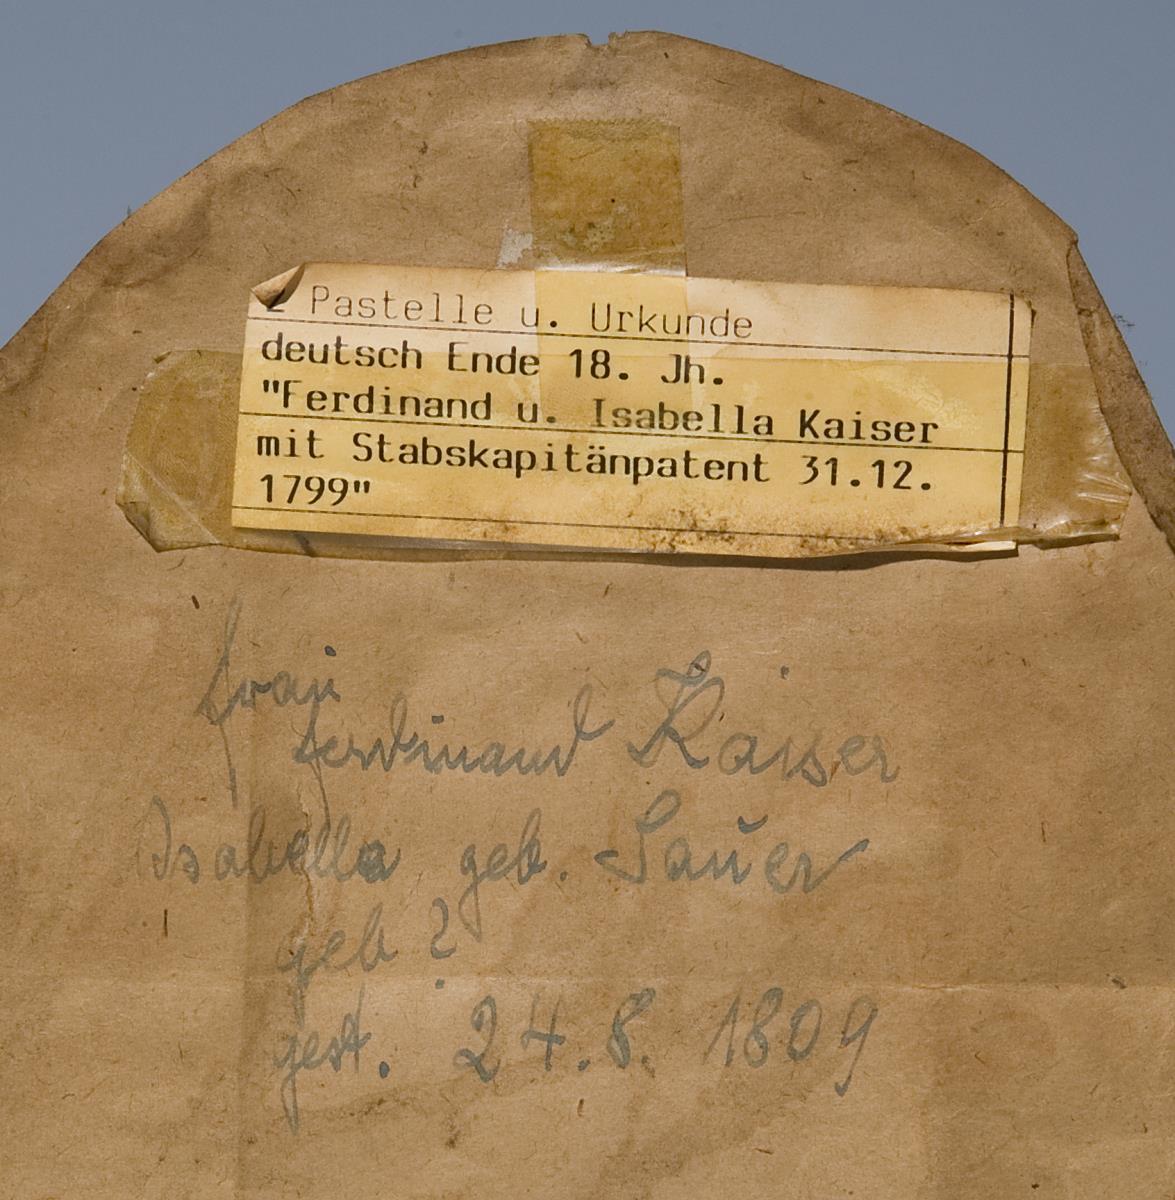 2 Pastelle u. Urkunde
deutsch Ende 18. Jh.
"Ferdinand u. Isabella Kaiser
mit Stabskapitänpatent 31.12.
1799"
Frau
Ferdinand Kaiser
Isabella geb. Sauer
geb ?
gest. 24.8. 1809